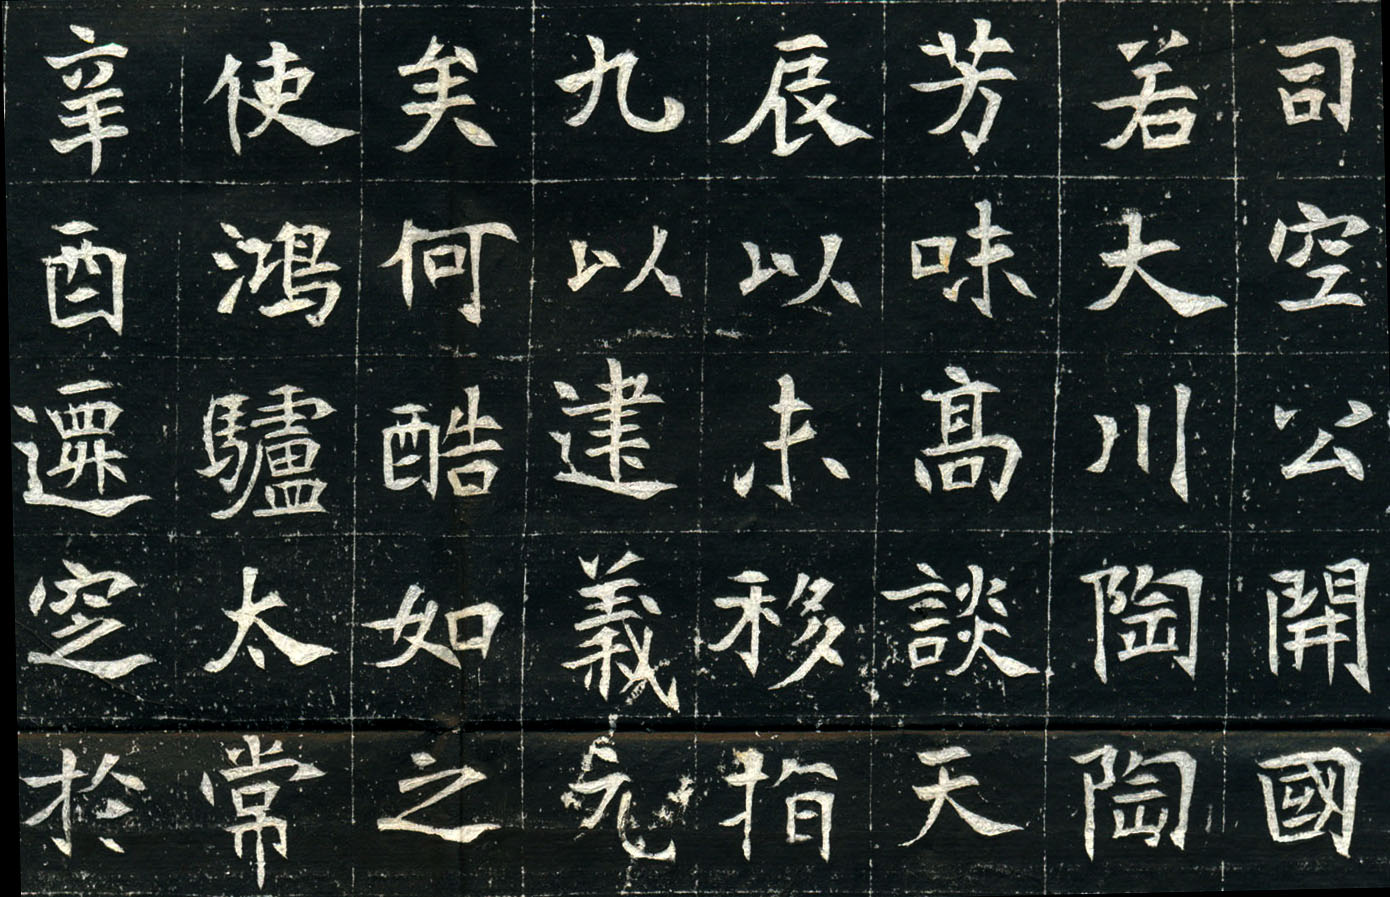 司空公開國
若大川陶陶
芳味高談天
辰以未移指
九以建義元
矣何酷如之
使鴻驢太常
辛酉遷窆於